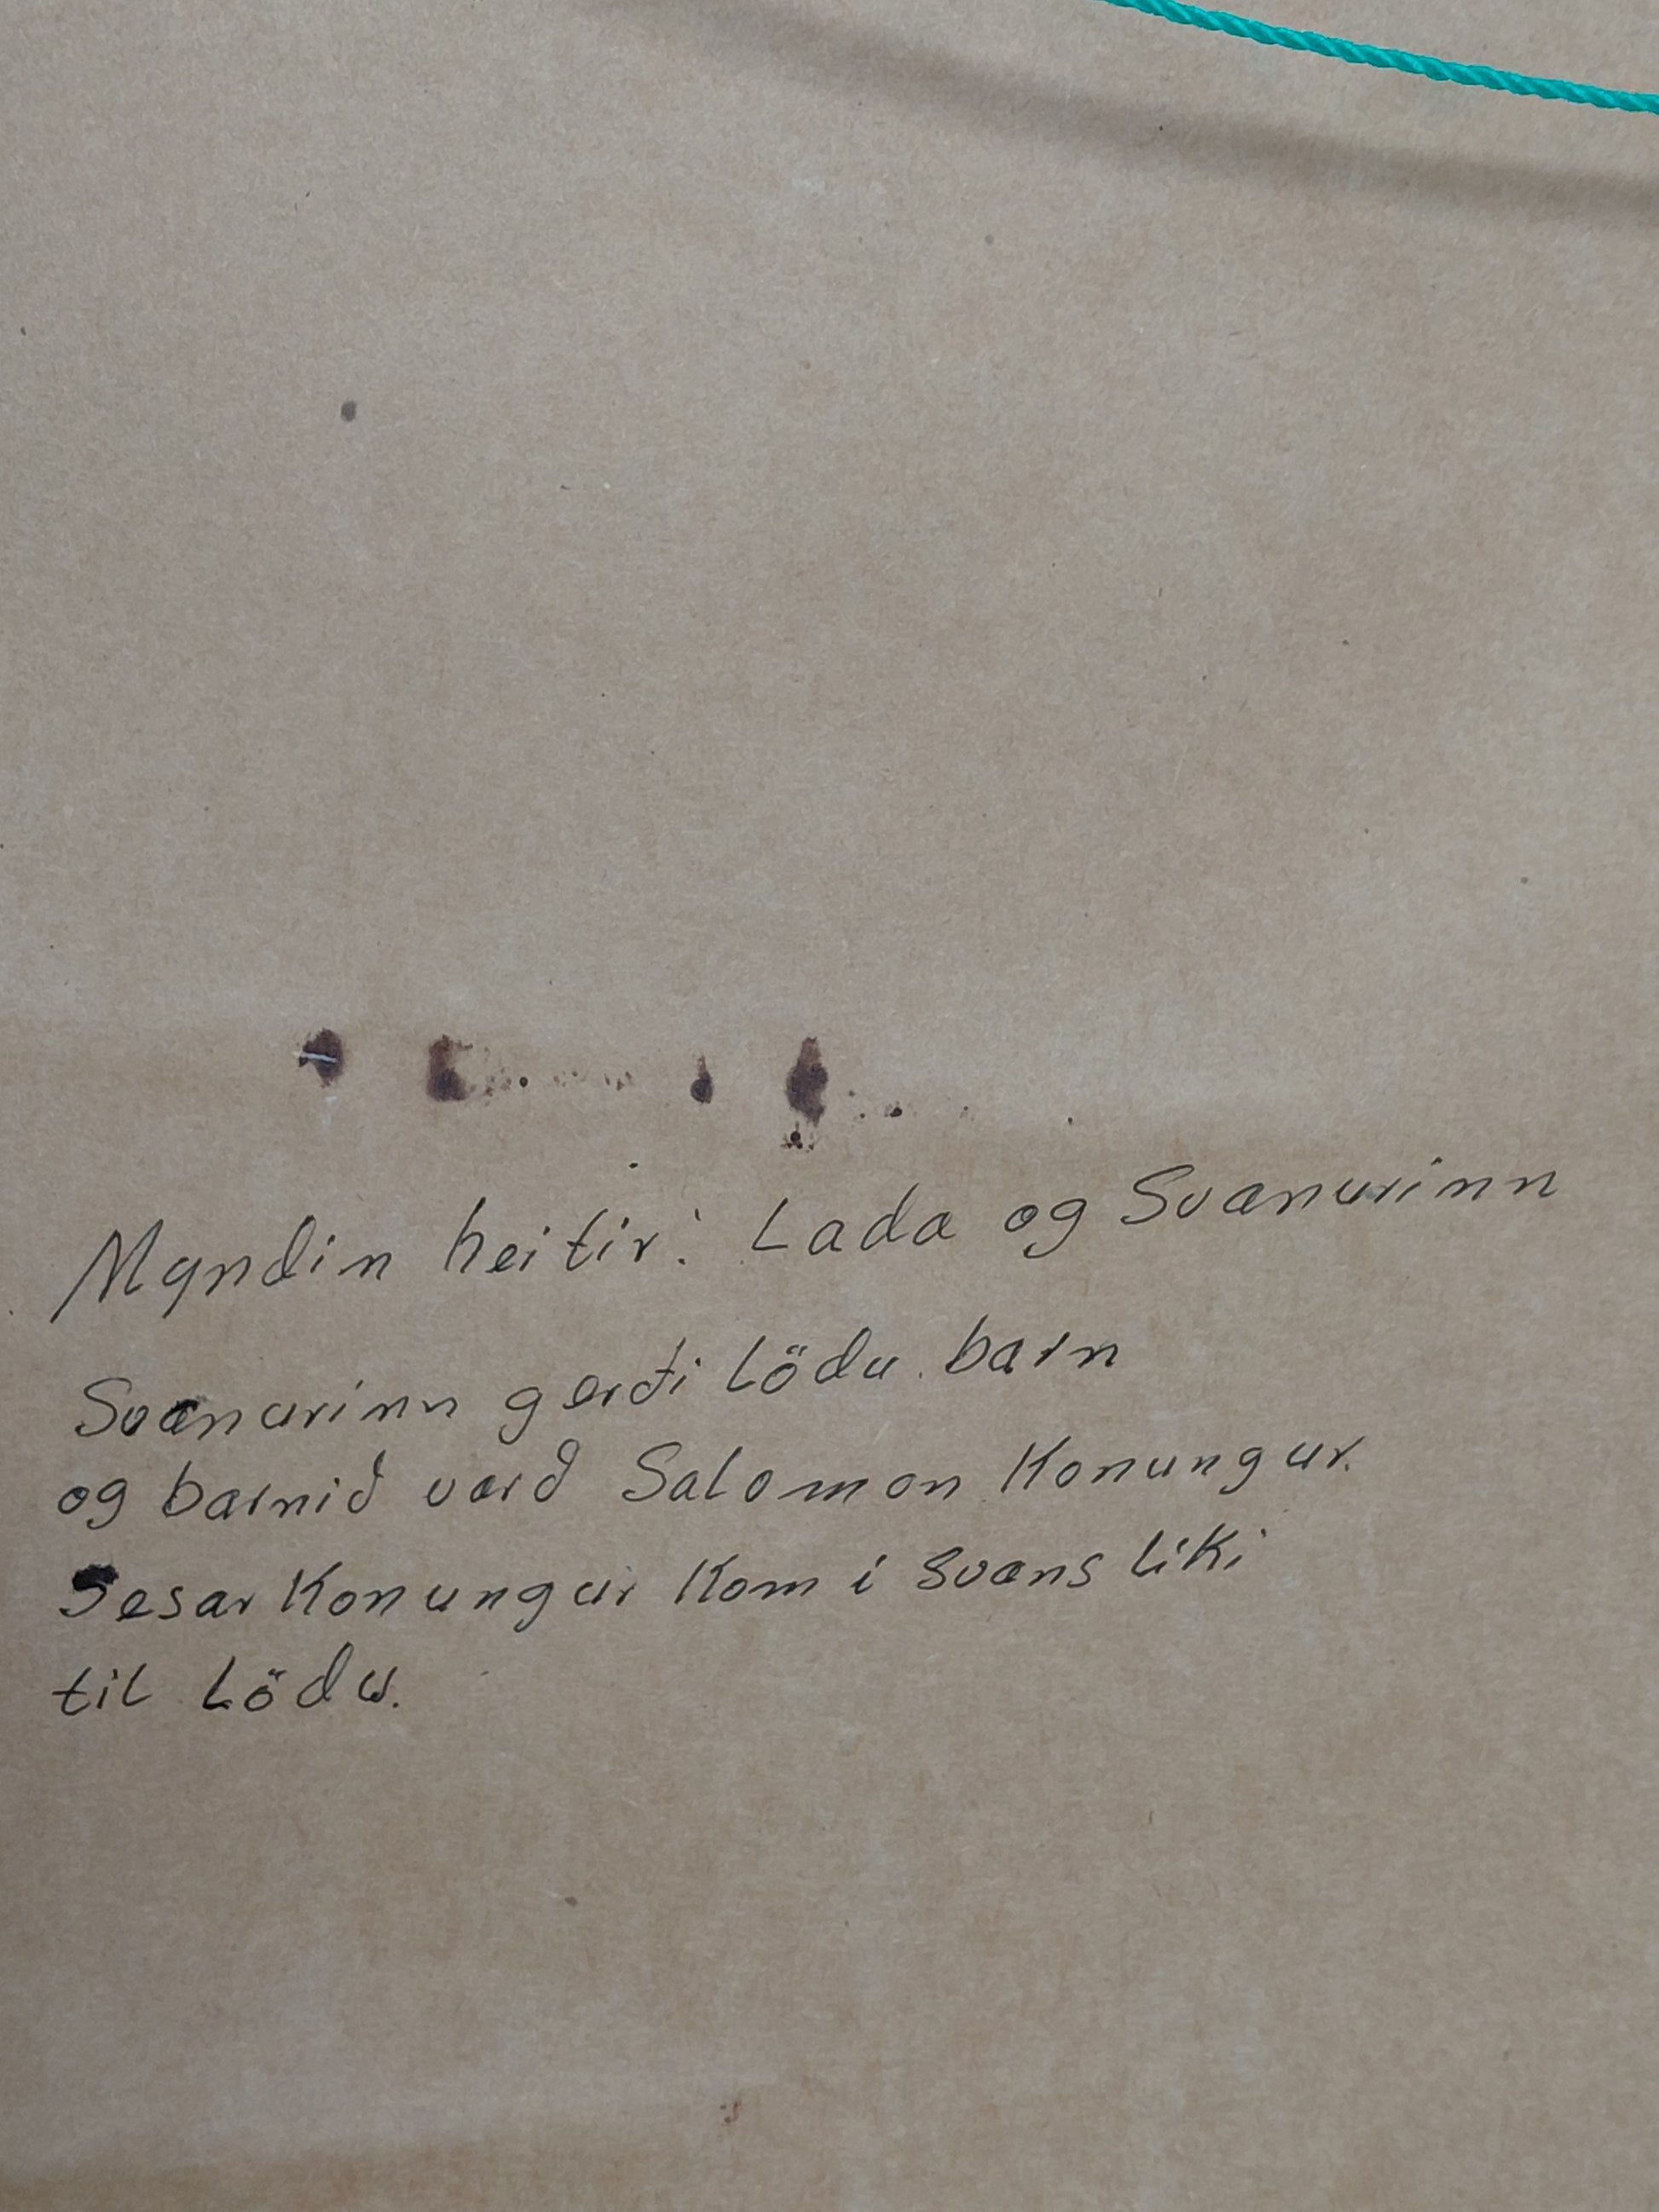 Myndin heitir: Lada og Svanurinn
Svanurinn gerði Lödu barn
og barnið varð Salomon Konungur.
Sesar Konungur Kom í Svans líki
til Lödu.